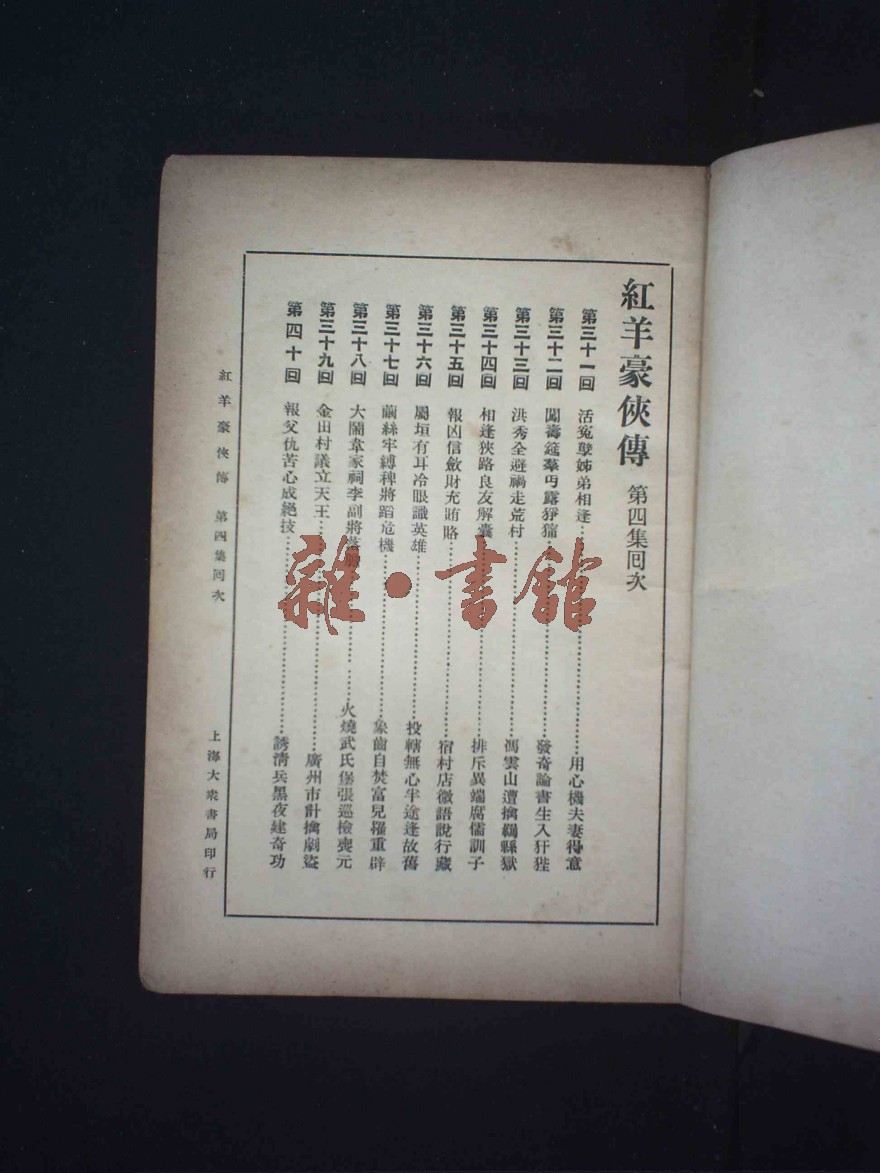 紅羊豪俠傳 第四集囘次
第三十一囘 活冤孽姊弟相逢 用心機夫妻得意
第三十二囘 鬧壽筵羣丐露猙獰 發奇論書生入犴狴
第三十三囘 洪秀全避禍走荒村 馮雲山遭擒羈縣獄
第三十四囘 相逢狹路良友解囊 排斥異端腐儒訓子
第三十五囘 報凶信斂財充賄賂 宿村店微語說行藏
第三十六囘 屬垣有耳冷眼識英雄 投轄無心半途逢故舊
第三十七囘 繭絲牢縛稗將蹈危機 象齒自焚富兒擢重辟
第三十八囘 大鬧韋家祠李副將落 火燒武氏堡張巡檢喪元
第三十九囘 金田村議立天王 廣州市計擒劇盜
第四十囘 報父仇苦心成絕技 誘清兵黑夜建奇功
紅羊豪俠傳 第四集囘次
上海大衆書局印行
雜·書館